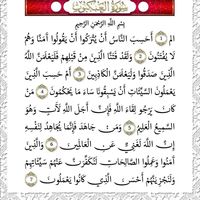 سورة العنكبوت
بِسْمِ اللَّهِ الرَّحْمَنِ الرَّحِيمِ
الم ﴿1﴾ أَحَسِبَ النَّاسُ أَنْ يُتْرَكُوا أَنْ يَقُولُوا آمَنَّا وَهُمْ
لَا يُفْتَنُونَ ﴿2﴾ وَلَقَدْ فَتَنَّا الَّذِينَ مِنْ قَبْلِهِمْ فَلَيَعْلَمَنَّ اللَّهُ
الَّذِينَ صَدَقُوا وَلَيَعْلَمَنَّ الْكَاذِبِينَ ﴿3﴾ أَمْ حَسِبَ الَّذِينَ
يَعْمَلُونَ السَّيِّئَاتِ أَنْ يَسْبِقُونَا سَاءَ مَا يَحْكُمُونَ ﴿4﴾ مَنْ
كَانَ يَرْجُو لِقَاءَ اللَّهِ فَإِنَّ أَجَلَ اللَّهِ لَآتٍ وَهُوَ
السَّمِيعُ الْعَلِيمُ ﴿5﴾ وَمَنْ جَاهَدَ فَإِنَّمَا يُجَاهِدُ لِنَفْسِهِ
إِنَّ اللَّهَ لَغَنِيٌّ عَنِ الْعَالَمِينَ ﴿6﴾ وَالَّذِينَ
آمَنُوا وَعَمِلُوا الصَّالِحَاتِ لَنُكَفِّرَنَّ عَنْهُمْ سَيِّئَاتِهِمْ
وَلَنَجْزِيَنَّهُمْ أَحْسَنَ الَّذِي كَانُوا يَعْمَلُونَ ﴿7﴾